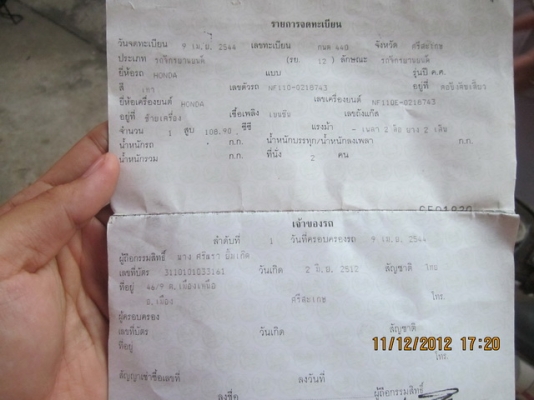 รายการจดทะเบียน
วันจดทะเบียน 9 เม.ย. 2544 เลขทะเบียน กมต 440 จังหวัด ศรีสะเกษ
ประเภท รถจักรยานยนต์ (รย. 12) ลักษณะ รถจักรยานยนต์
ยี่ห้อรถ HONDA แบบ รุ่นปี ค.ศ.
สี เทา เลขตัวรถ NF110-0218743 อยู่ที่
ยี่ห้อเครื่องยนต์ HONDA เลขเครื่องยนต์ NF110E-0218743
อยู่ที่ ซ้ายเครื่อง เชื้อเพลิง เบนซิน เลขถังแก๊ส
จำนวน 1 สูบ 108.90 ซีซี แรงม้า - เพลา 2 ล้อ ยาง 2 เส้น
น้ำหนักรถ ก.ก. น้ำหนักบรรทุก/น้ำหนักลงเพลา ก.ก.
น้ำหนักรวม ก.ก. ที่นั่ง 2 คน
เจ้าของรถ
ลำดับที่ 1 วันที่ครอบครองรถ 9 เม.ย. 2544
ผู้ถือกรรมสิทธิ์ นาง
เลขที่บัตร วันเกิด 2 มิ.ย. 2512 สัญชาติ ไทย
ที่อยู่ 46/9 ต.เมืองเหนือ
อ.เมือง ศรีสะเกษ โทร.
ผู้ครอบครอง
เลขที่บัตร วันเกิด สัญชาติ
ที่อยู่ โทร.
11/12/2012 17:20
สัญญาเช่าซื้อเลขที่ ลงวันที่ ผู้ถือกรรมสิทธิ์
ลงชื่อ